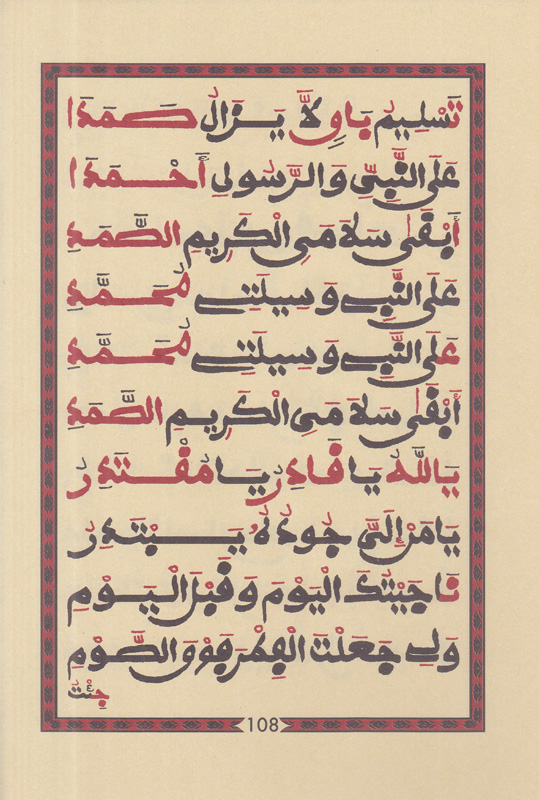 تَسْلِيمُ بَاقٍ لاَّ يَزَالُ صَمَدَا
عَلَى النَّبِيِّ وَالرَّسُولِ أَحْمَدَا
أَبْقَى سَلاَمَيِ الْكَرِيمِ الصَّمَدِ
عَلَى النَّبِي وَسِيلَتِي مُحَمَّدِ
عَلَى النَّبِي وَسِيلَتِي مُحَمَّدِ
أَبْقَى سَلاَمَيِ الْكَرِيمِ الصَّمَدِ
يَا اللَّهُ يَا قَادِرُ يَا مُقْتَدِرُ
يَا مَنْ إِلَيَّ جُودُهُ يَبْتَدِرُ
نَاجَيْتُكَ الْيَوْمَ وَقَبْلَ الْيَوْمِ
وَلِي جَعَلْتَ الْفِطْرَ فَوْقَ الصَّوْمِ
جِئْتَ
108